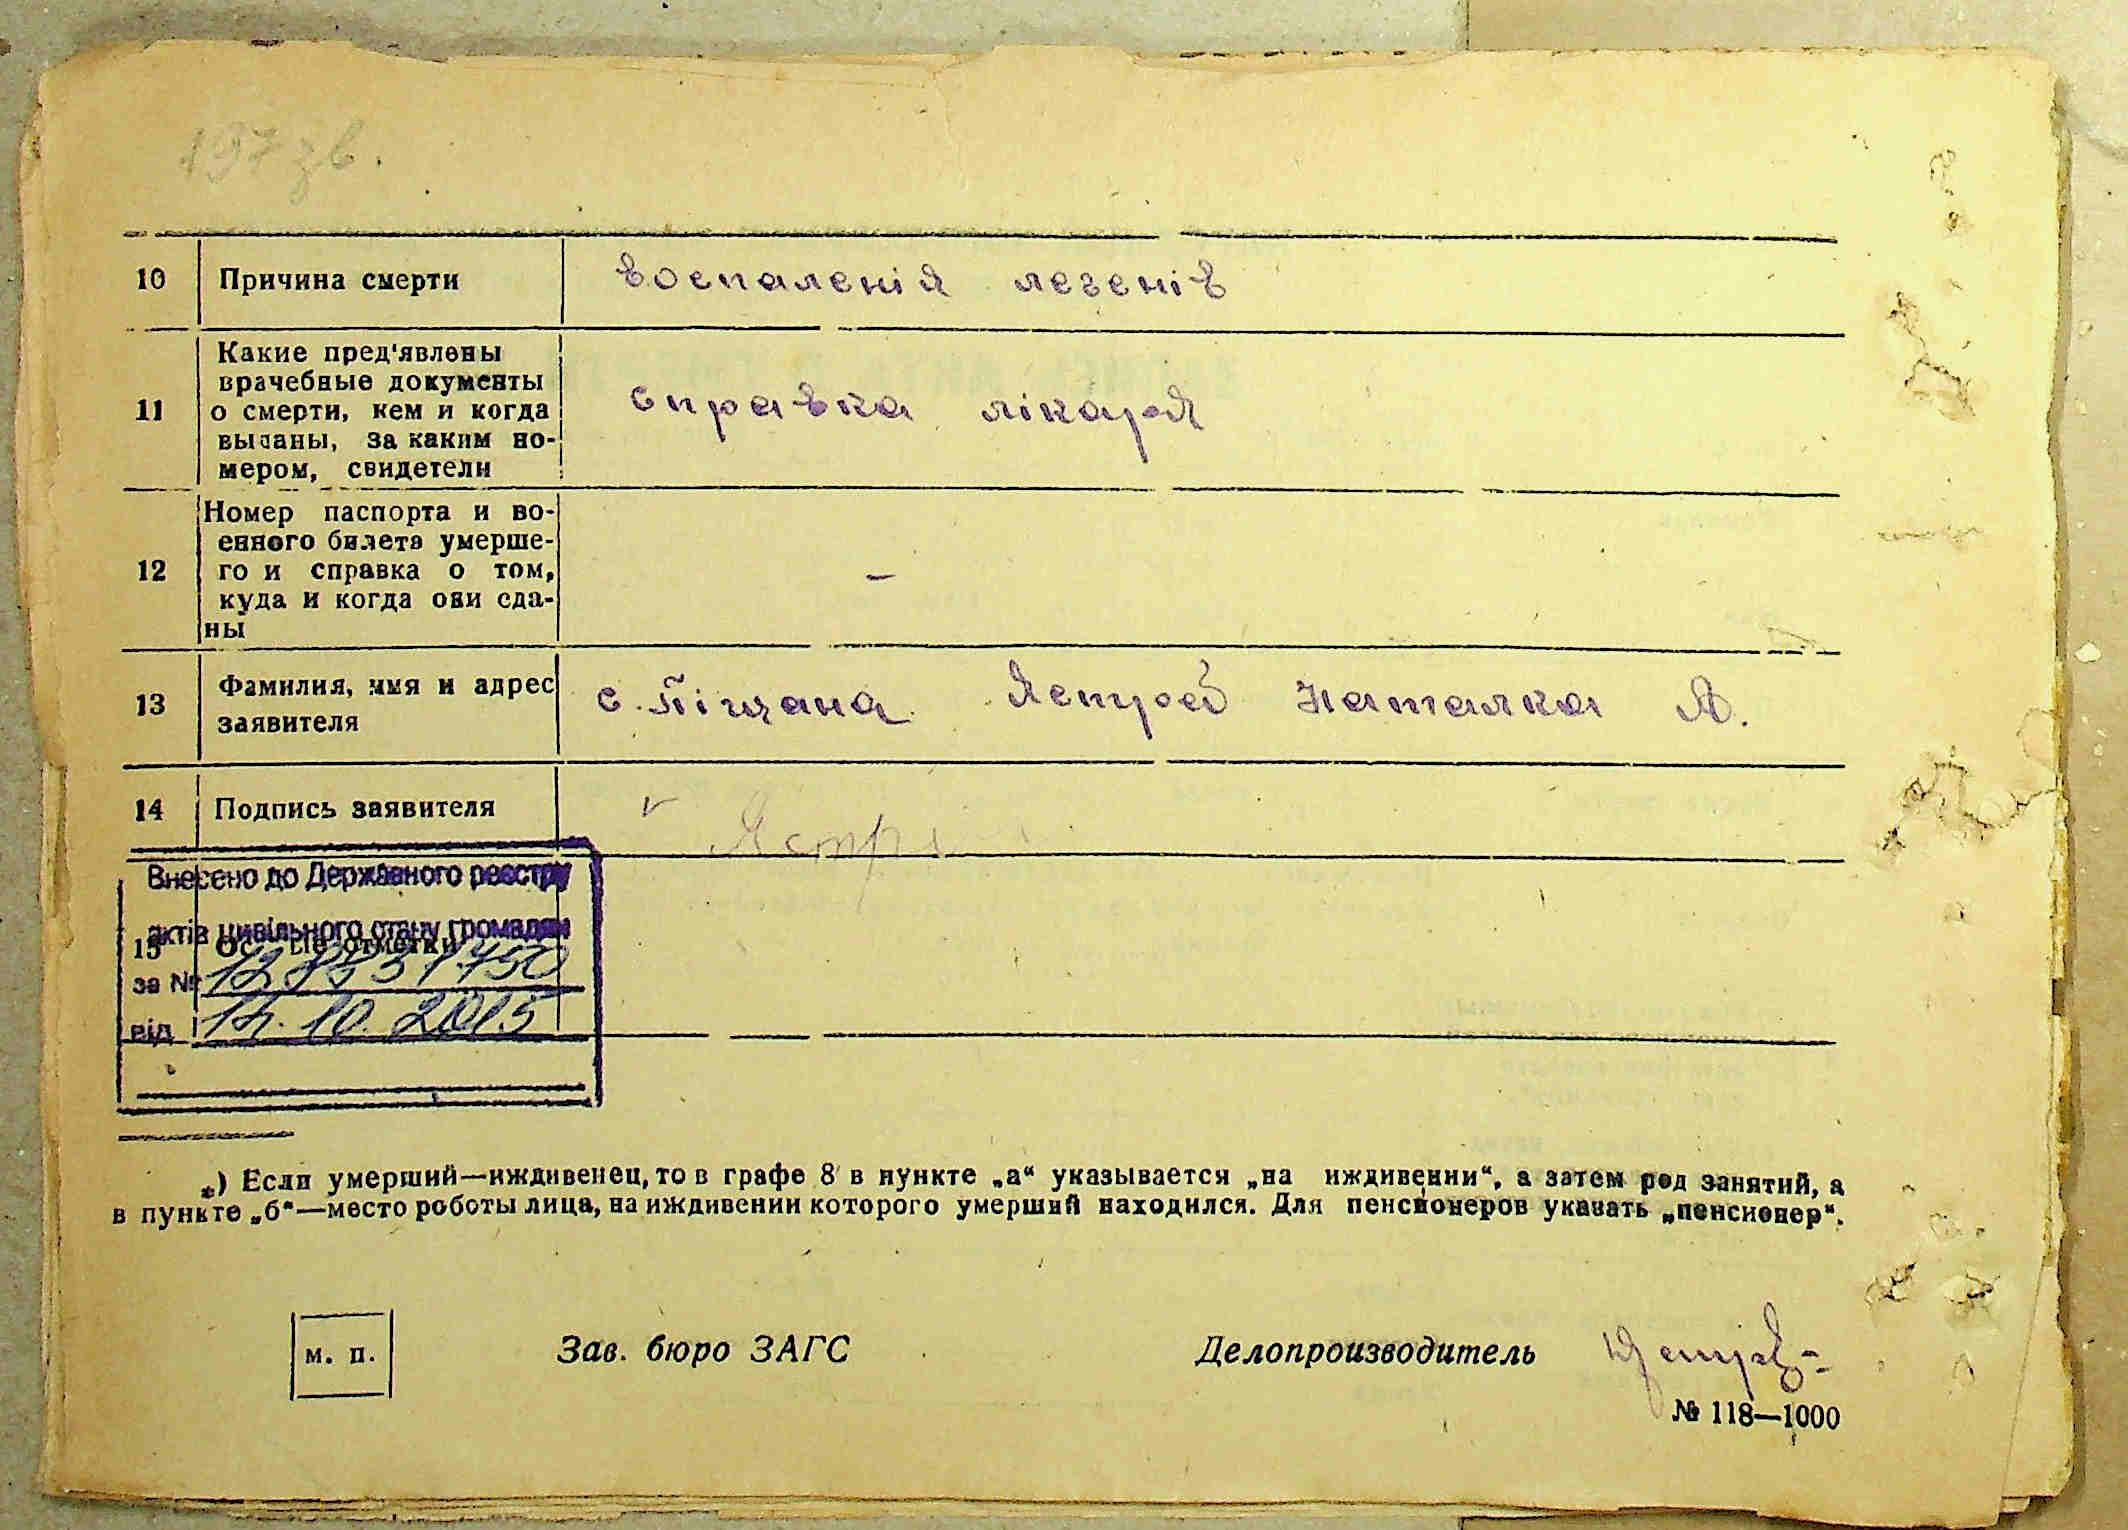 197 зв.
10 Причина смерти воспаленія легенів
11 Какие пред'явлены
врачебные документы
о смерти, кем и когда
выданы, за каким но-
мером, свидетели
справка лікаря
12 Номер паспорта и во-
енного билета умерше-
го и справка о том,
куда и когда они сда-
ны
–
13 Фамилия, имя и адрес
заявителя
с. Піщана Ястреб Наталка А.
14 Подпись заявителя
Внесено до Державного реєстру
актів цивільного стану громадян
15 отметки
за №
від 14.10.2015
*) Если умерший—иждивенец, то в графе 8 в пункте „а“ указывается „на иждивении“, а затем род занятий, а
в пункте „б“—место роботы лица, на иждивении которого умерший находился. Для пенсионеров указать „пенсионер“.
м. п. Зав. бюро ЗАГС Делопроизводитель
№ 118—1000